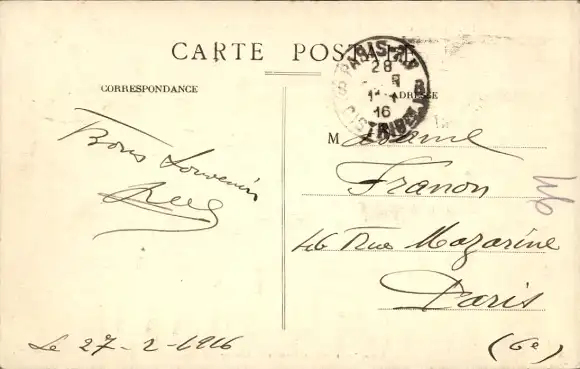 CARTE POSTALE
CORRESPONDANCE
ADRESSE
PARIS
28
16
DISTRIBUTION
Bons Souvenirs
Le 27-2-1916
Madame
Franon
46 Rue Mazarine
Paris
(6e)